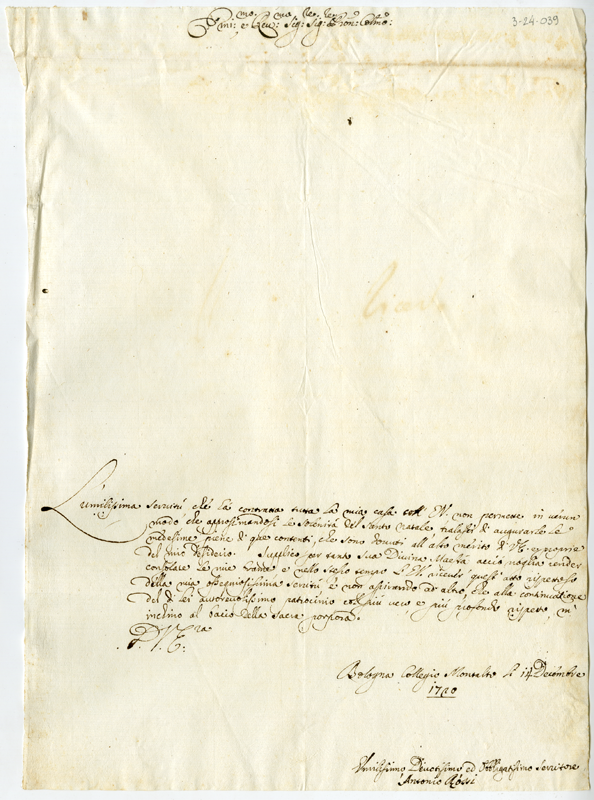 3-24-039
Emi:mo e Rev:mo Sig:re Sig:re Pron: Colmo:
L'umilissima servitù che hà contratta tutta la mia casa coll' E.V. non permette in veruno
modo che approsimandosi le solennità del Santo Natale tralasci di augurarle le
medesime piene di que contenti, che sono dovuti all'alto merito di V.E. e proprie
del mio desiderio. Supplico per tanto Sua Divina Maestà acciò voglia render
consolate le mie brame e nello stesso tempo l'E.V. ricever quest'atto rispettoso
della mia ossequiosissima servitù e non aspirando ad altro, che alla continuazione
del di lei autorevolissimo patrocinio col più vero e più profondo rispetto m'
inchino al bacio della Sacra porpora.
D. V. E.ra
Bologna Collegio Montalto li 14 Decembre
Umilissimo Devotissimo ed Obligatissimo Servitore
Antonio Rossi